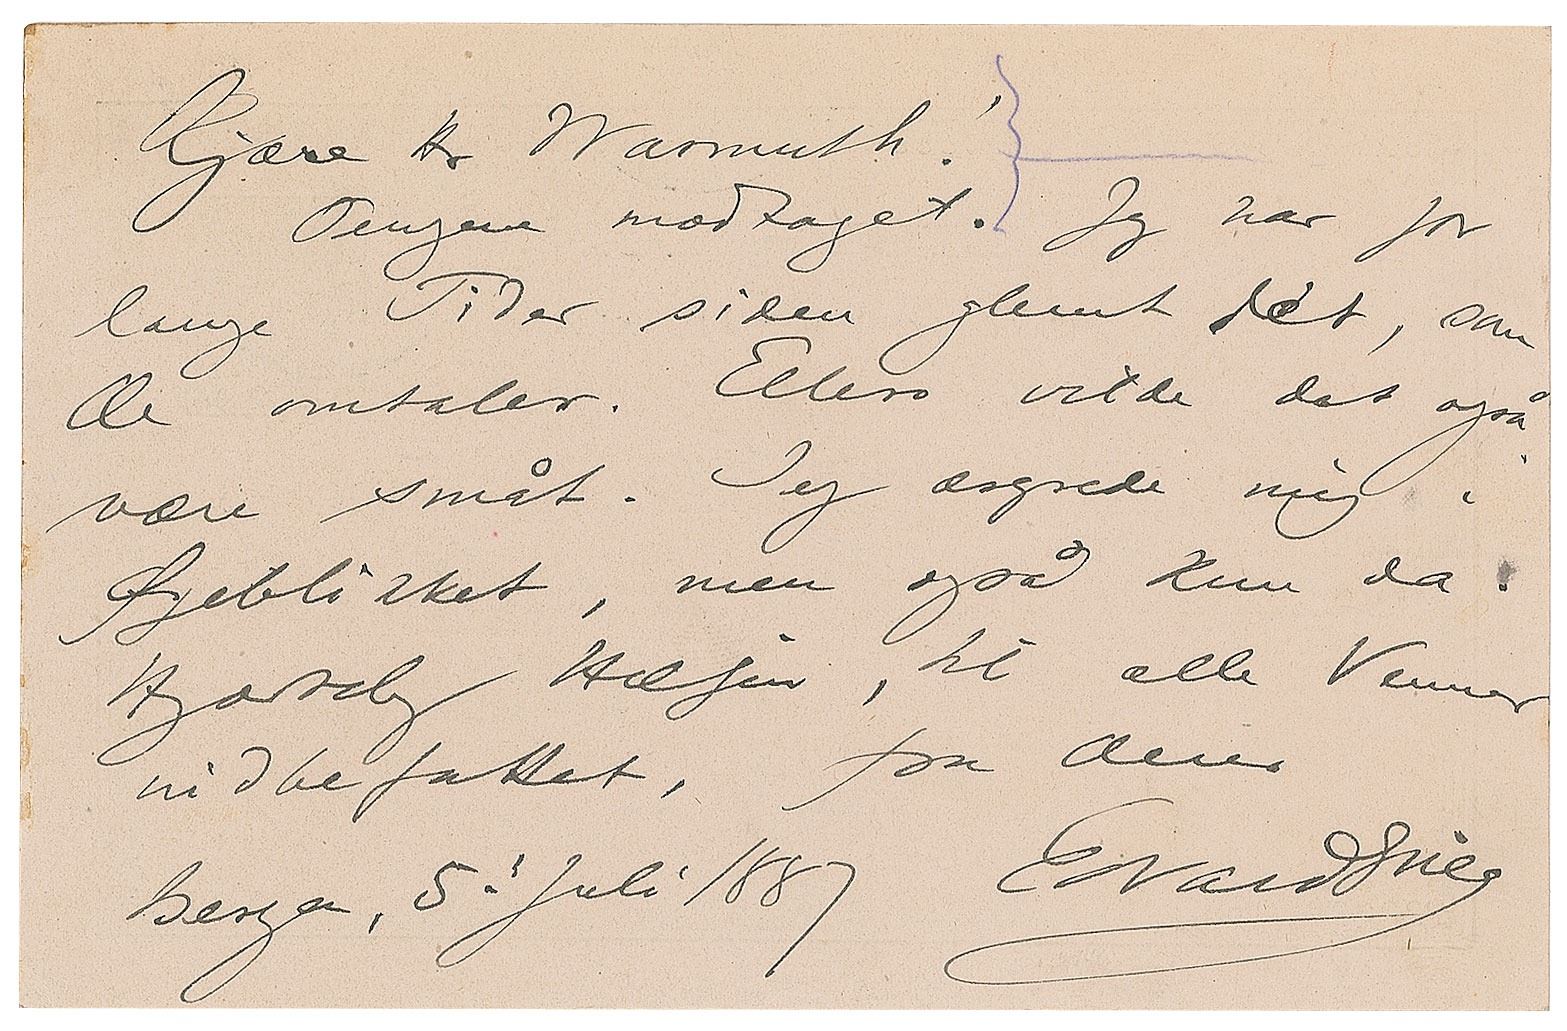 Kjære Hr Warmuth!
Pengene modtaget. Jeg har for
lange Tider siden glemt det, som
De omtaler. Ellers vilde det også
være småt. Jeg ærgrede mig i
Øjeblikket, men også kun da.
Hjærtelig Hilsen, til alle Venner
indbefattet, fra Deres
Edvard Grieg
Bergen, 5. Juli 1887